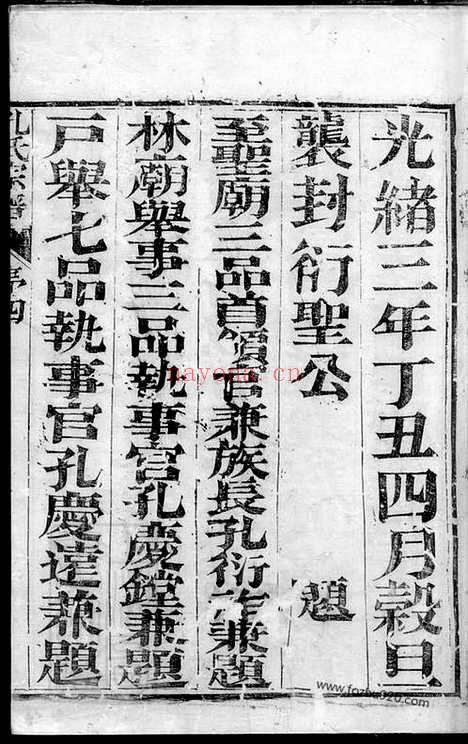 光緒三年丁丑四月穀旦
襲封衍聖公　　　題
至聖廟三品首領官兼族長孔衍　兼題
林廟舉事三品執事官孔慶鏜兼題
戶舉七品執事官孔慶達兼題
孔氏宗譜　序四
nayona.cn
www.fozhu920.com